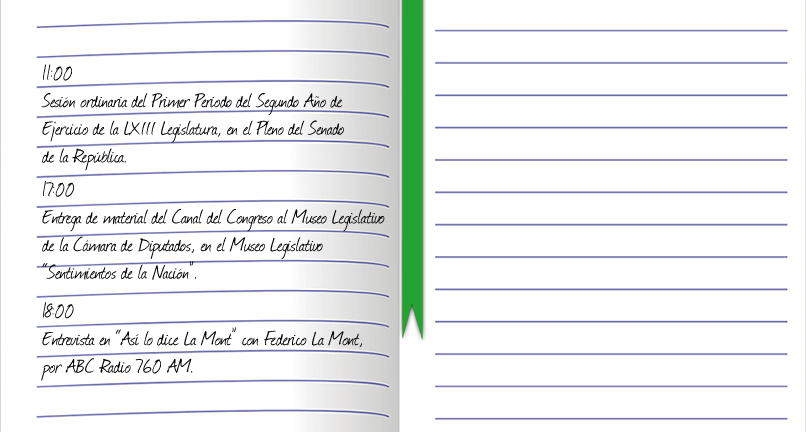 11:00
Sesión ordinaria del Primer Periodo del Segundo Año de
Ejercicio de la LXIII Legislatura, en el Pleno del Senado
de la República.
17:00
Entrega de material del Canal del Congreso al Museo Legislativo
de la Cámara de Diputados, en el Museo Legislativo
"Sentimientos de la Nación".
18:00
Entrevista en "Así lo dice La Mont" con Federico La Mont,
por ABC Radio 760 AM.